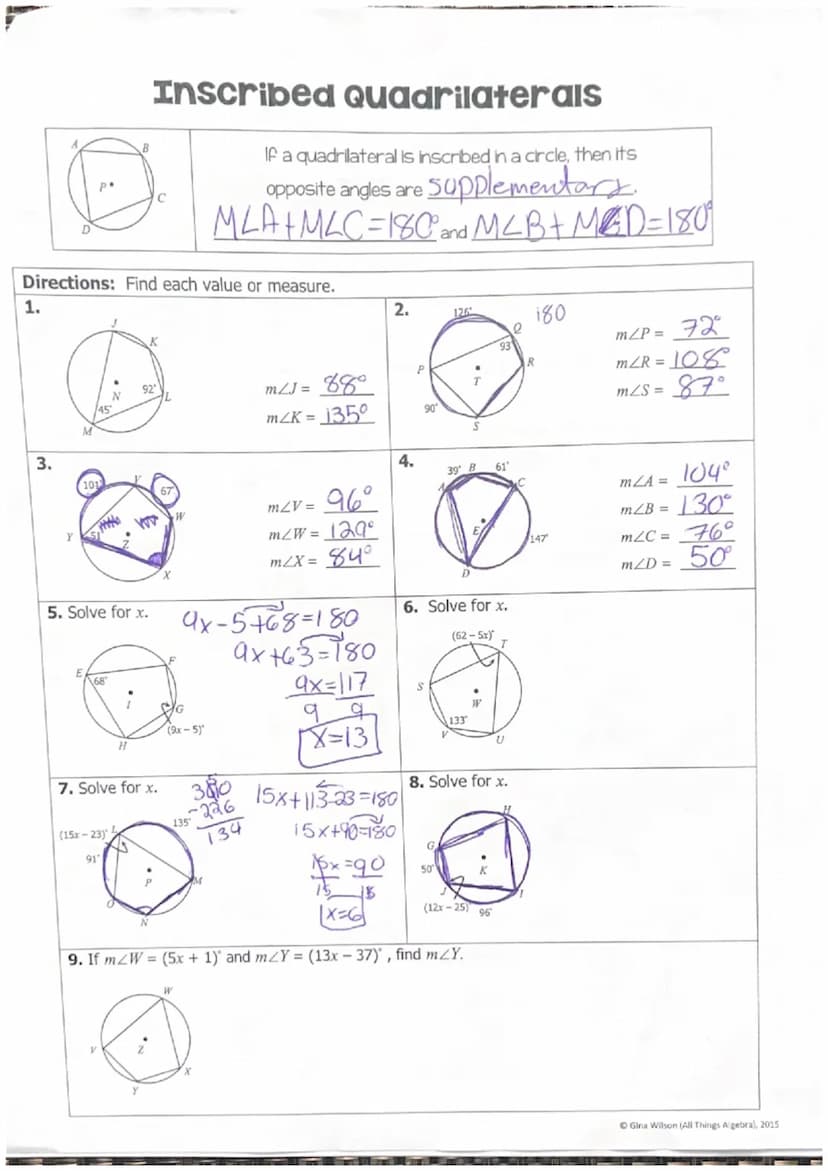 Inscribed Quadrilaterals
A
B
P
C
D
If a quadrilateral is inscribed in a circle, then its
opposite angles are supplementary.
M∠A+M∠C=180° and M∠B+M∠D=180°
Directions: Find each value or measure.
1.
J
K
N
92°
L
45°
M
m∠J = 88°
m∠K = 135°
2.
126°
Q
180
93°
P
R
T
90°
S
m∠P = 72°
m∠R = 108°
m∠S = 87°
3.
101°
V
67°
W
Y
51°
Z
X
m∠V = 96°
m∠W = 129°
m∠X = 84°
4.
39° B 61°
A
C
E
147°
D
m∠A = 104°
m∠B = 130°
m∠C = 76°
m∠D = 50°
5. Solve for x.
9x-5+68=180
9x+63=180
9x=117
9 9
x=13
E
F
68°
I
G
H
(9x – 5)°
6. Solve for x.
(62 – 5x)°
T
S
W
133°
V
U
7. Solve for x.
360
-226
134
15x+113-23=180
15x+90=180
15x=90
15 15
x=6
135°
(15x – 23)°
L
91°
P
M
O
N
8. Solve for x.
H
G
50°
K
J
I
(12x – 25)°
96°
9. If m∠W = (5x + 1)° and m∠Y = (13x – 37)°, find m∠Y.
W
V
Z
X
Y
© Gina Wilson (All Things Algebra), 2015